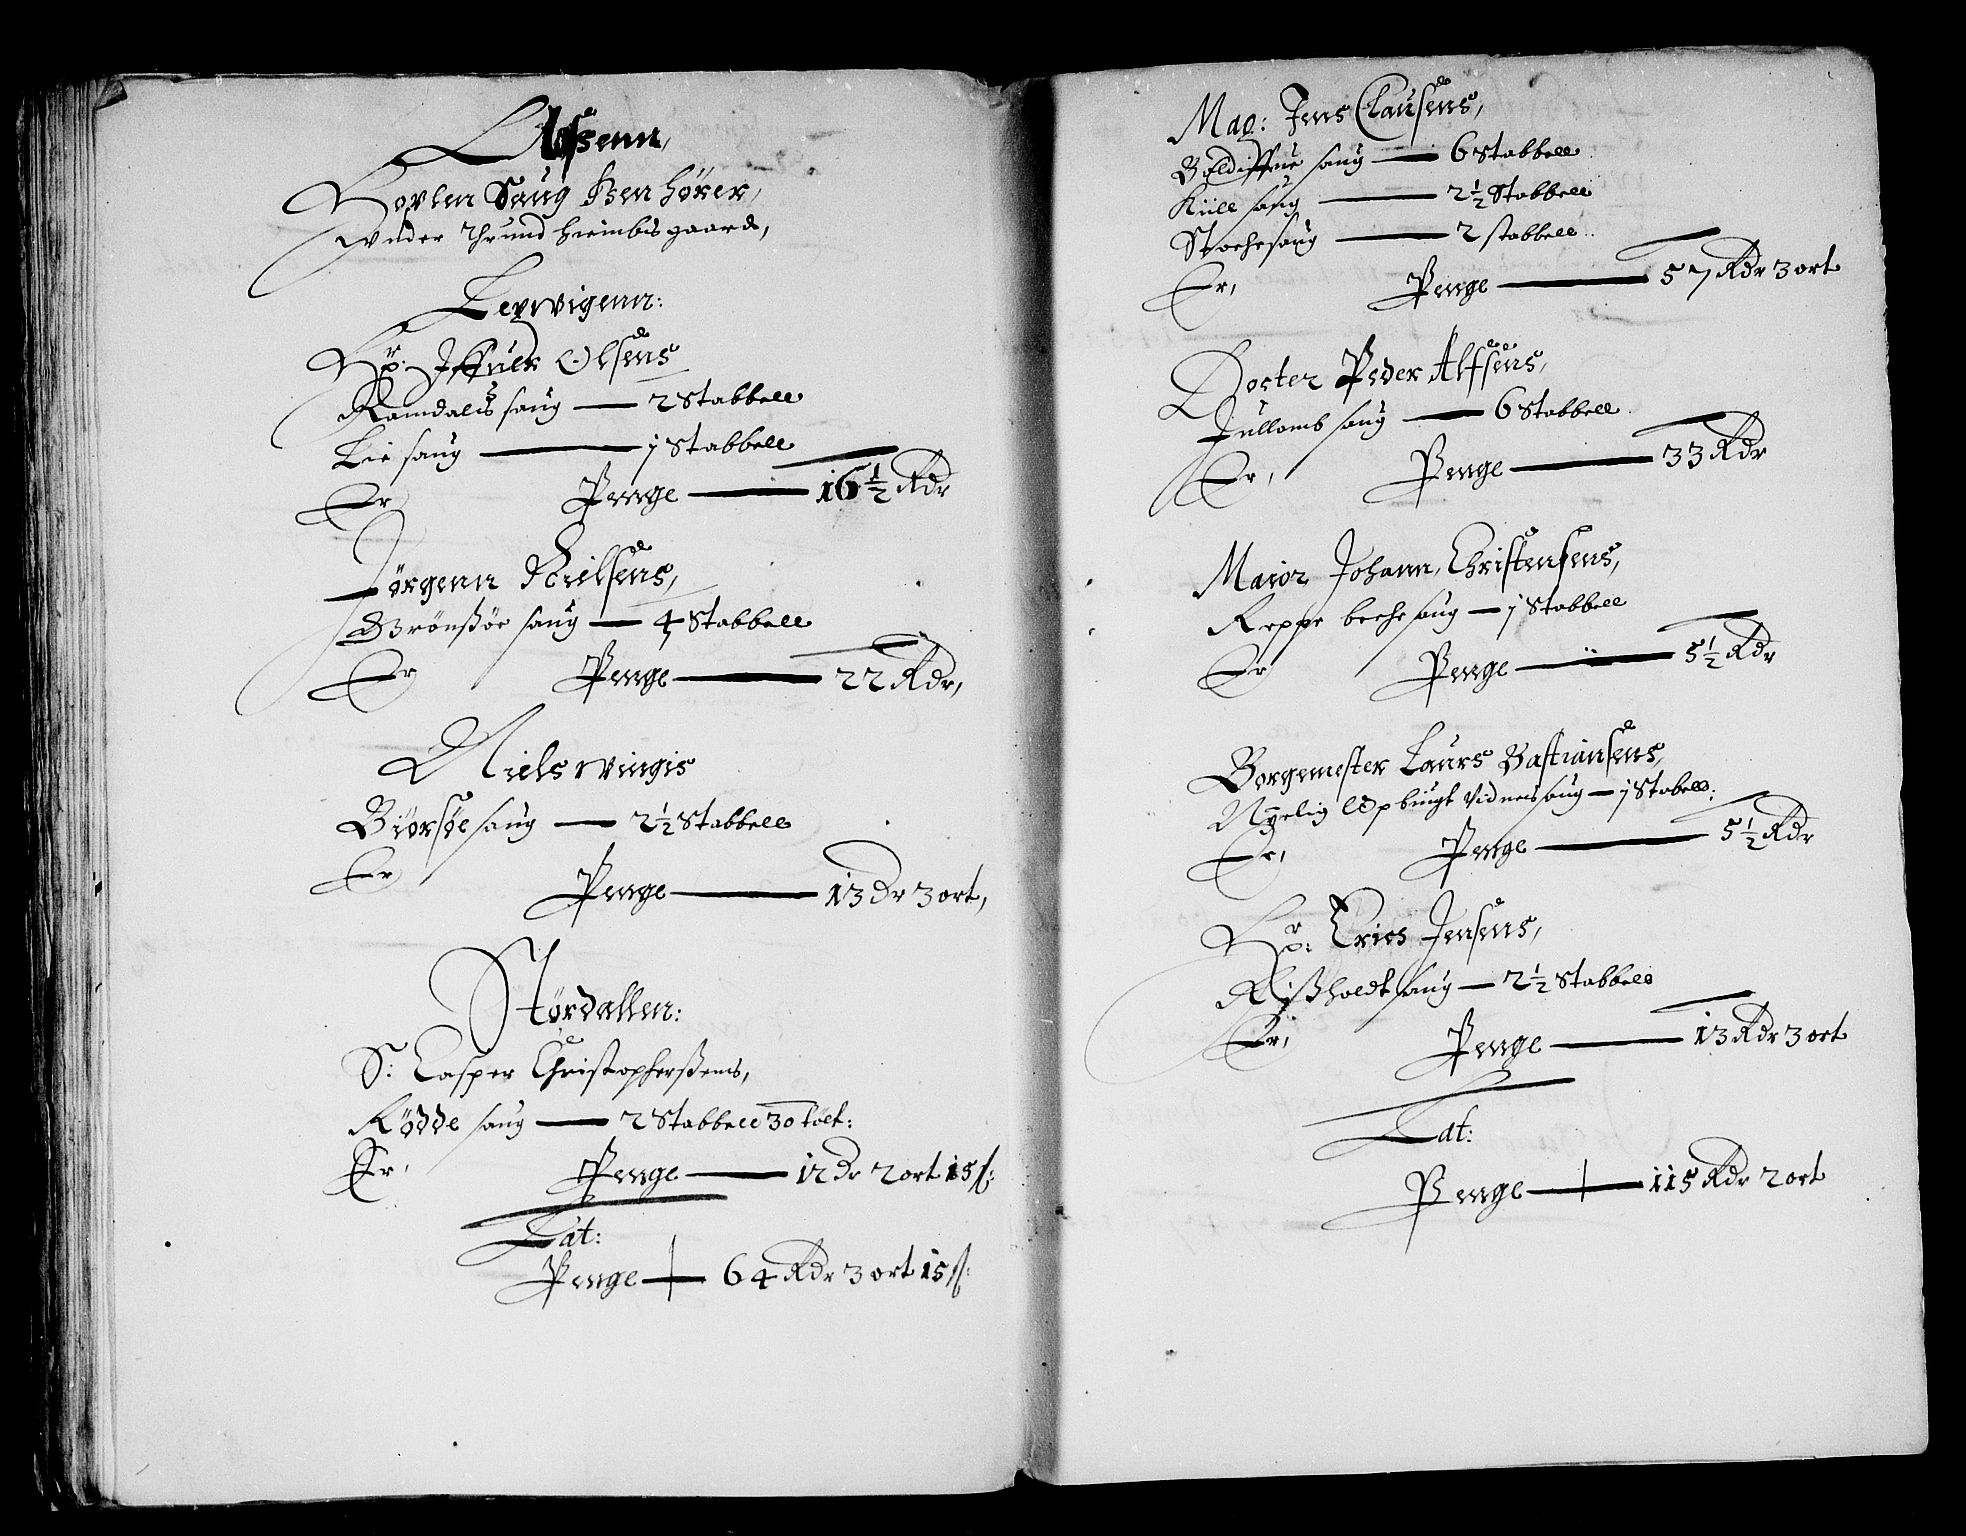 Aasenn,
Hovlen Saug Hen hører,
Wnder Thrund heimbis gaard,
Lexvigenn:
Hr: Iffuer Olsens
Ramdals saug — 2 Stabbell
Lie saug — 1 Stabbell
Er Penge — 16½ Rdr
Jørgenn Nielsens,
Grönßöe saug — 4 Stabbell
Er Penge — 22 Rdr,
Niels wingis
Biörsöe saug — 2½ Stabbell
Er Penge — 13 Dr 3 ort,
Størdallen:
S: Casper Christopherßens,
Rödde saug — 2 Stabbell 30 tolt:
Er, Penge — 12 Dr 2 ort 15 ß:
Lat:
Penge — 64 Rdr 3 ort 15 ß:
Mag: Jens Clausens,
saug — 6 Stabbell
Hiill saug — 2½ Stabbell
Stoche saug — 2 stabbell
Er, Penge — 57 Rdr 3 ort
Docter Peder Alfsens,
Jullomb saug — 6 Stabbell
Er, Penge — 33 Rdr
Maior Johann, Christensens,
Reppe beche saug — 1 Stabbell
Er Penge — 5½ Rdr
Borgemester Laurs Bastiansens,
Nyelig Opbüugt Vidnes saug — 1 Stabell:
Er, Penge — 5½ Rdr
Hr: Erics Jensens,
Rißholdt saug — 2½ Stabbell
Er, Penge — 13 Rdr 3 ort
Lat:
Penge — 115 Rdr 2 ort